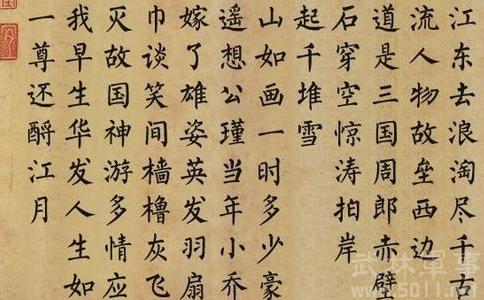 江东去浪淘尽千古
流人物故垒西边
道是三国周郎赤壁
石穿空惊涛拍岸
起千堆雪
山如画一时多少豪
遥想公瑾当年小乔
嫁了雄姿英发羽扇
巾谈笑间樯橹灰飞
灭故国神游多情应
我早生华发人生如
一尊还酹江月
武林軍事